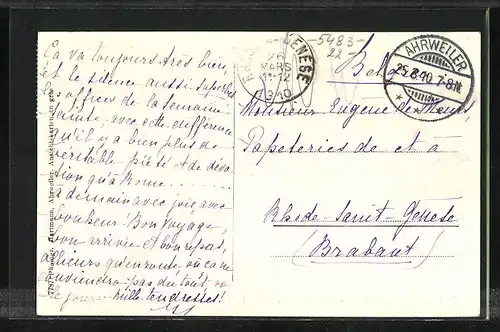 Ça va toujours très bien,
et le silence aussi. J'appelle
les offices de la semaine
sainte, avec cette différence
qu'il y a bien plus de
véritable piété et de dévo-
tion qu'à Rome ...
à demain avec joie, avec
bonheur! Bon voyage,
bon arrivée et bon repas,
ailleurs qu'en route, où ça ne
conviendra pas du tout,
le jour. Mille tendresses!
GENESE
MARS
11-12
1910
5483
22
AHRWEILER
25.3.10. 7-8 N.
Belg
Monsieur Eugène de Meurs,
Papeteries de et à
Rhode-Saint-Genèse
(Brabant)
Hartmann, Ahrweiler.